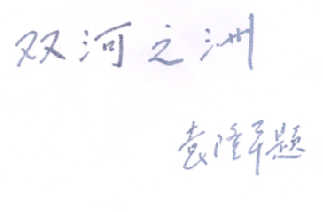 双河之洲
袁隆平题